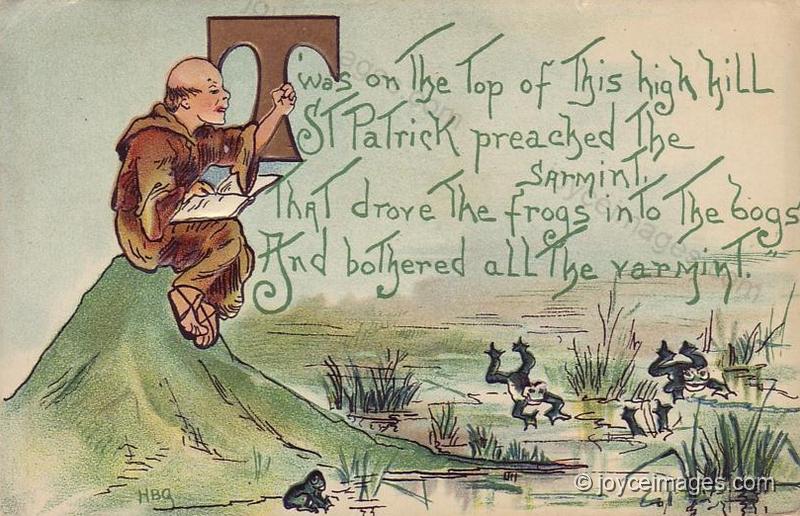 T'was on The Top of This high hill
ST PaTrick preached The
sarmint.
ThaT drove The frogs inTo The bogs
And bothered all The varmint."
HBG
© joyceimages.com